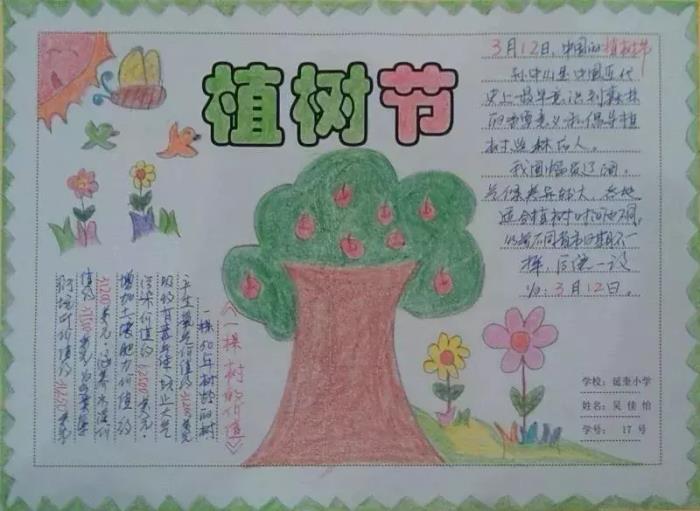 植树节
3月12日,中国的植树节
孙中山是中国近代
史上最早意识到森林
的重要意义和倡导植
树造林的人。
我国幅员辽阔,
气候差异较大,各地
适合植树时间也不同,
同节日日期不
样,后统一设
为:3月12日。
《一棵树的价值》
一棵50年树龄的树
产生氧气价值约31200美元
吸收有毒气体防止大气
污染价值约62500美元
增加土壤肥力价值约
31200美元,涵养水源价
值约37500美元
学校:延奎小学
姓名:吴佳怡
学号: 17号